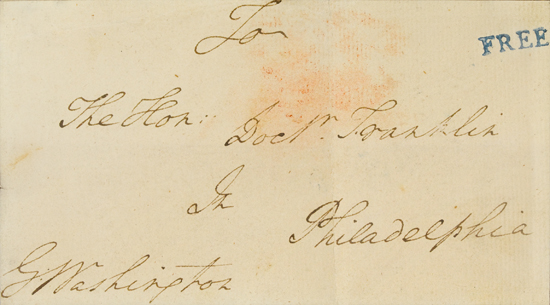 To
FREE
The Hon: Doctr. Franklin
In
Philadelphia
GWashington